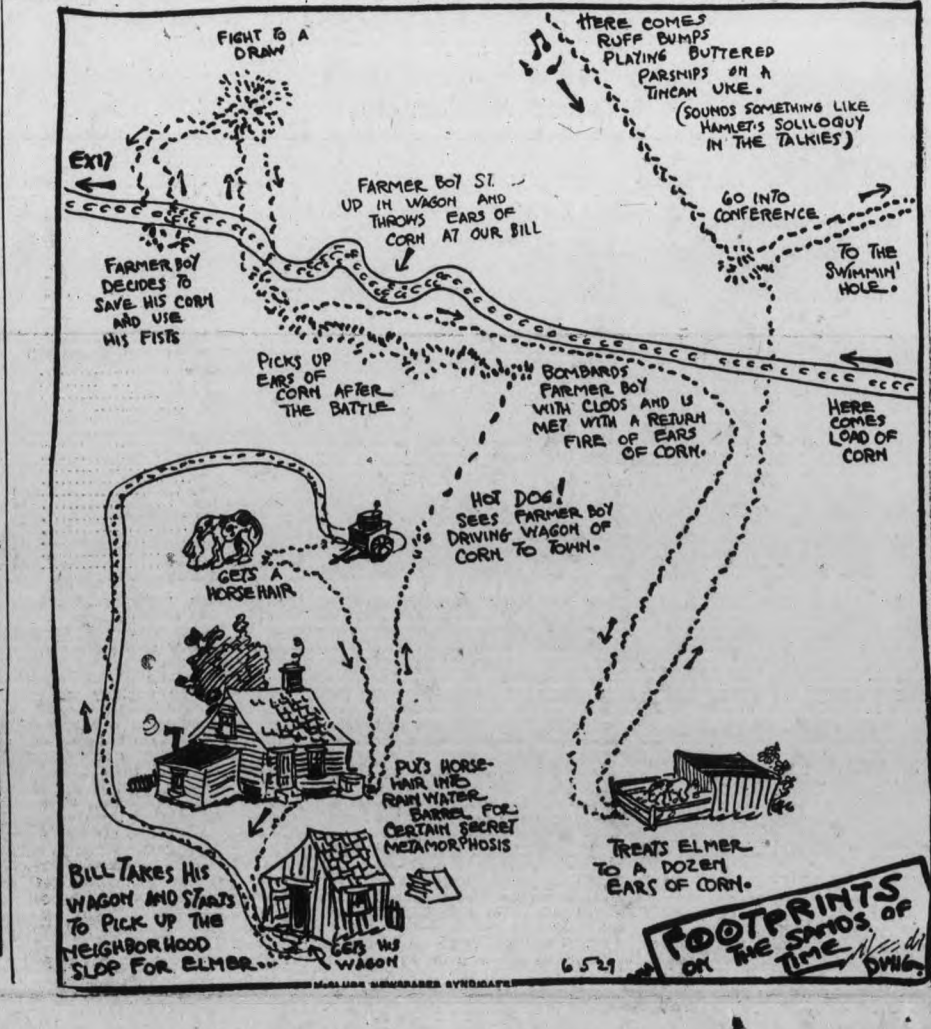 FIGHT TO A
DRAW
HERE COMES
RUFF BUMPS
PLAYING BUTTERED
PARSNIPS ON A
TINCAN UKE.
(SOUNDS SOMETHING LIKE
HAMLET'S SOLILOQUY
IN THE TALKIES)
EXIT
FARMER BOY ST.
UP IN WAGON AND
THROWS EARS OF
CORN AT OUR BILL
GO INTO
CONFERENCE
TO THE
SWIMMIN'
HOLE.
FARMER BOY
DECIDES TO
SAVE HIS CORN
AND USE
HIS FISTS
PICKS UP
EARS OF
CORN AFTER
THE BATTLE
BOMBARDS
FARMER BOY
WITH CLODS AND IS
MET WITH A RETURN
FIRE OF EARS
OF CORN.
HERE
COMES
LOAD OF
CORN
HOT DOG!
SEES FARMER BOY
DRIVING WAGON OF
CORN TO TOWN.
GETS A
HORSE HAIR
PUTS HORSE-
HAIR INTO
RAIN WATER
BARREL FOR
CERTAIN SECRET
METAMORPHOSIS
TREATS ELMER
TO A DOZEN
EARS OF CORN.
BILL TAKES HIS
WAGON AND STARTS
TO PICK UP THE
NEIGHBORHOOD
SLOP FOR ELMER...
GETS HIS
WAGON
6 5 29
FOOTPRINTS
ON THE SANDS OF
TIME
DWIG
McCLURE NEWSPAPER SYNDICATE